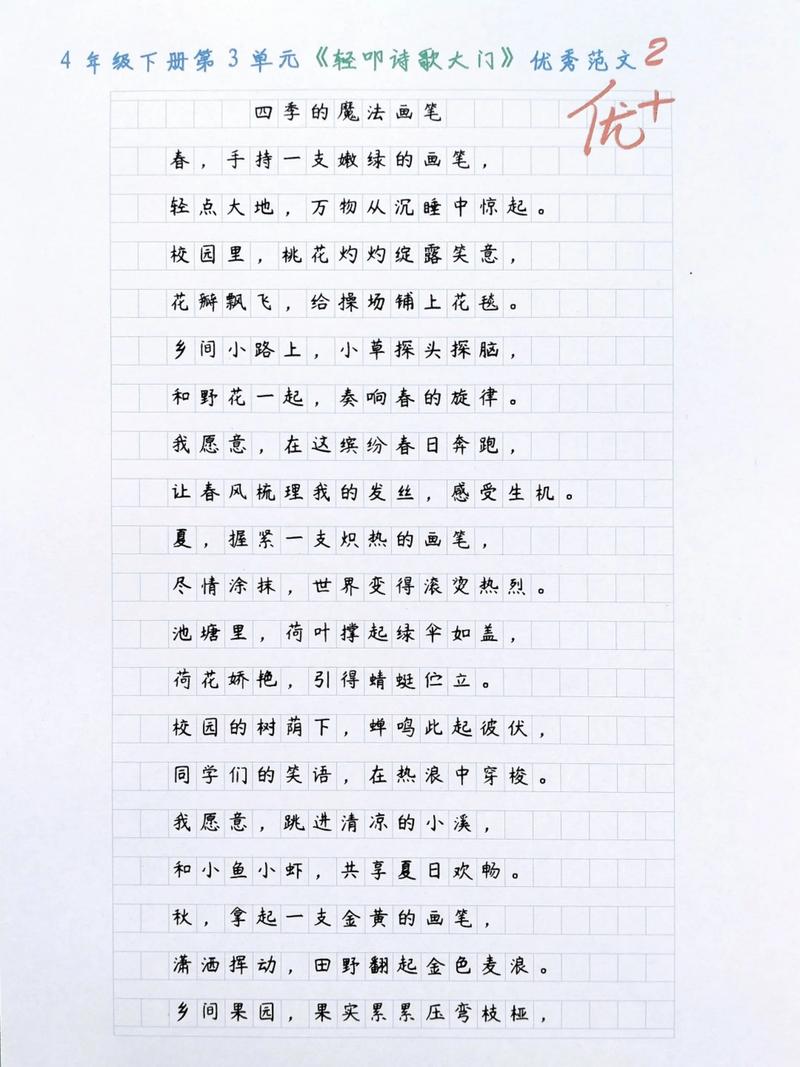 4年级下册第3单元《轻叩诗歌大门》优秀范文2
优+
四季的魔法画笔
春，手持一支嫩绿的画笔，
轻点大地，万物从沉睡中惊起。
校园里，桃花灼灼绽露笑意，
花瓣飘飞，给操场铺上花毯。
乡间小路上，小草探头探脑，
和野花一起，奏响春的旋律。
我愿意，在这缤纷春日奔跑，
让春风梳理我的发丝，感受生机。
夏，握紧一支炽热的画笔，
尽情涂抹，世界变得滚烫热烈。
池塘里，荷叶撑起绿伞如盖，
荷花娇艳，引得蜻蜓伫立。
校园的树荫下，蝉鸣此起彼伏，
同学们的笑语，在热浪中穿梭。
我愿意，跳进清凉的小溪，
和小鱼小虾，共享夏日欢畅。
秋，拿起一支金黄的画笔，
潇洒挥动，田野翻起金色麦浪。
乡间果园，果实累累压弯枝桠，